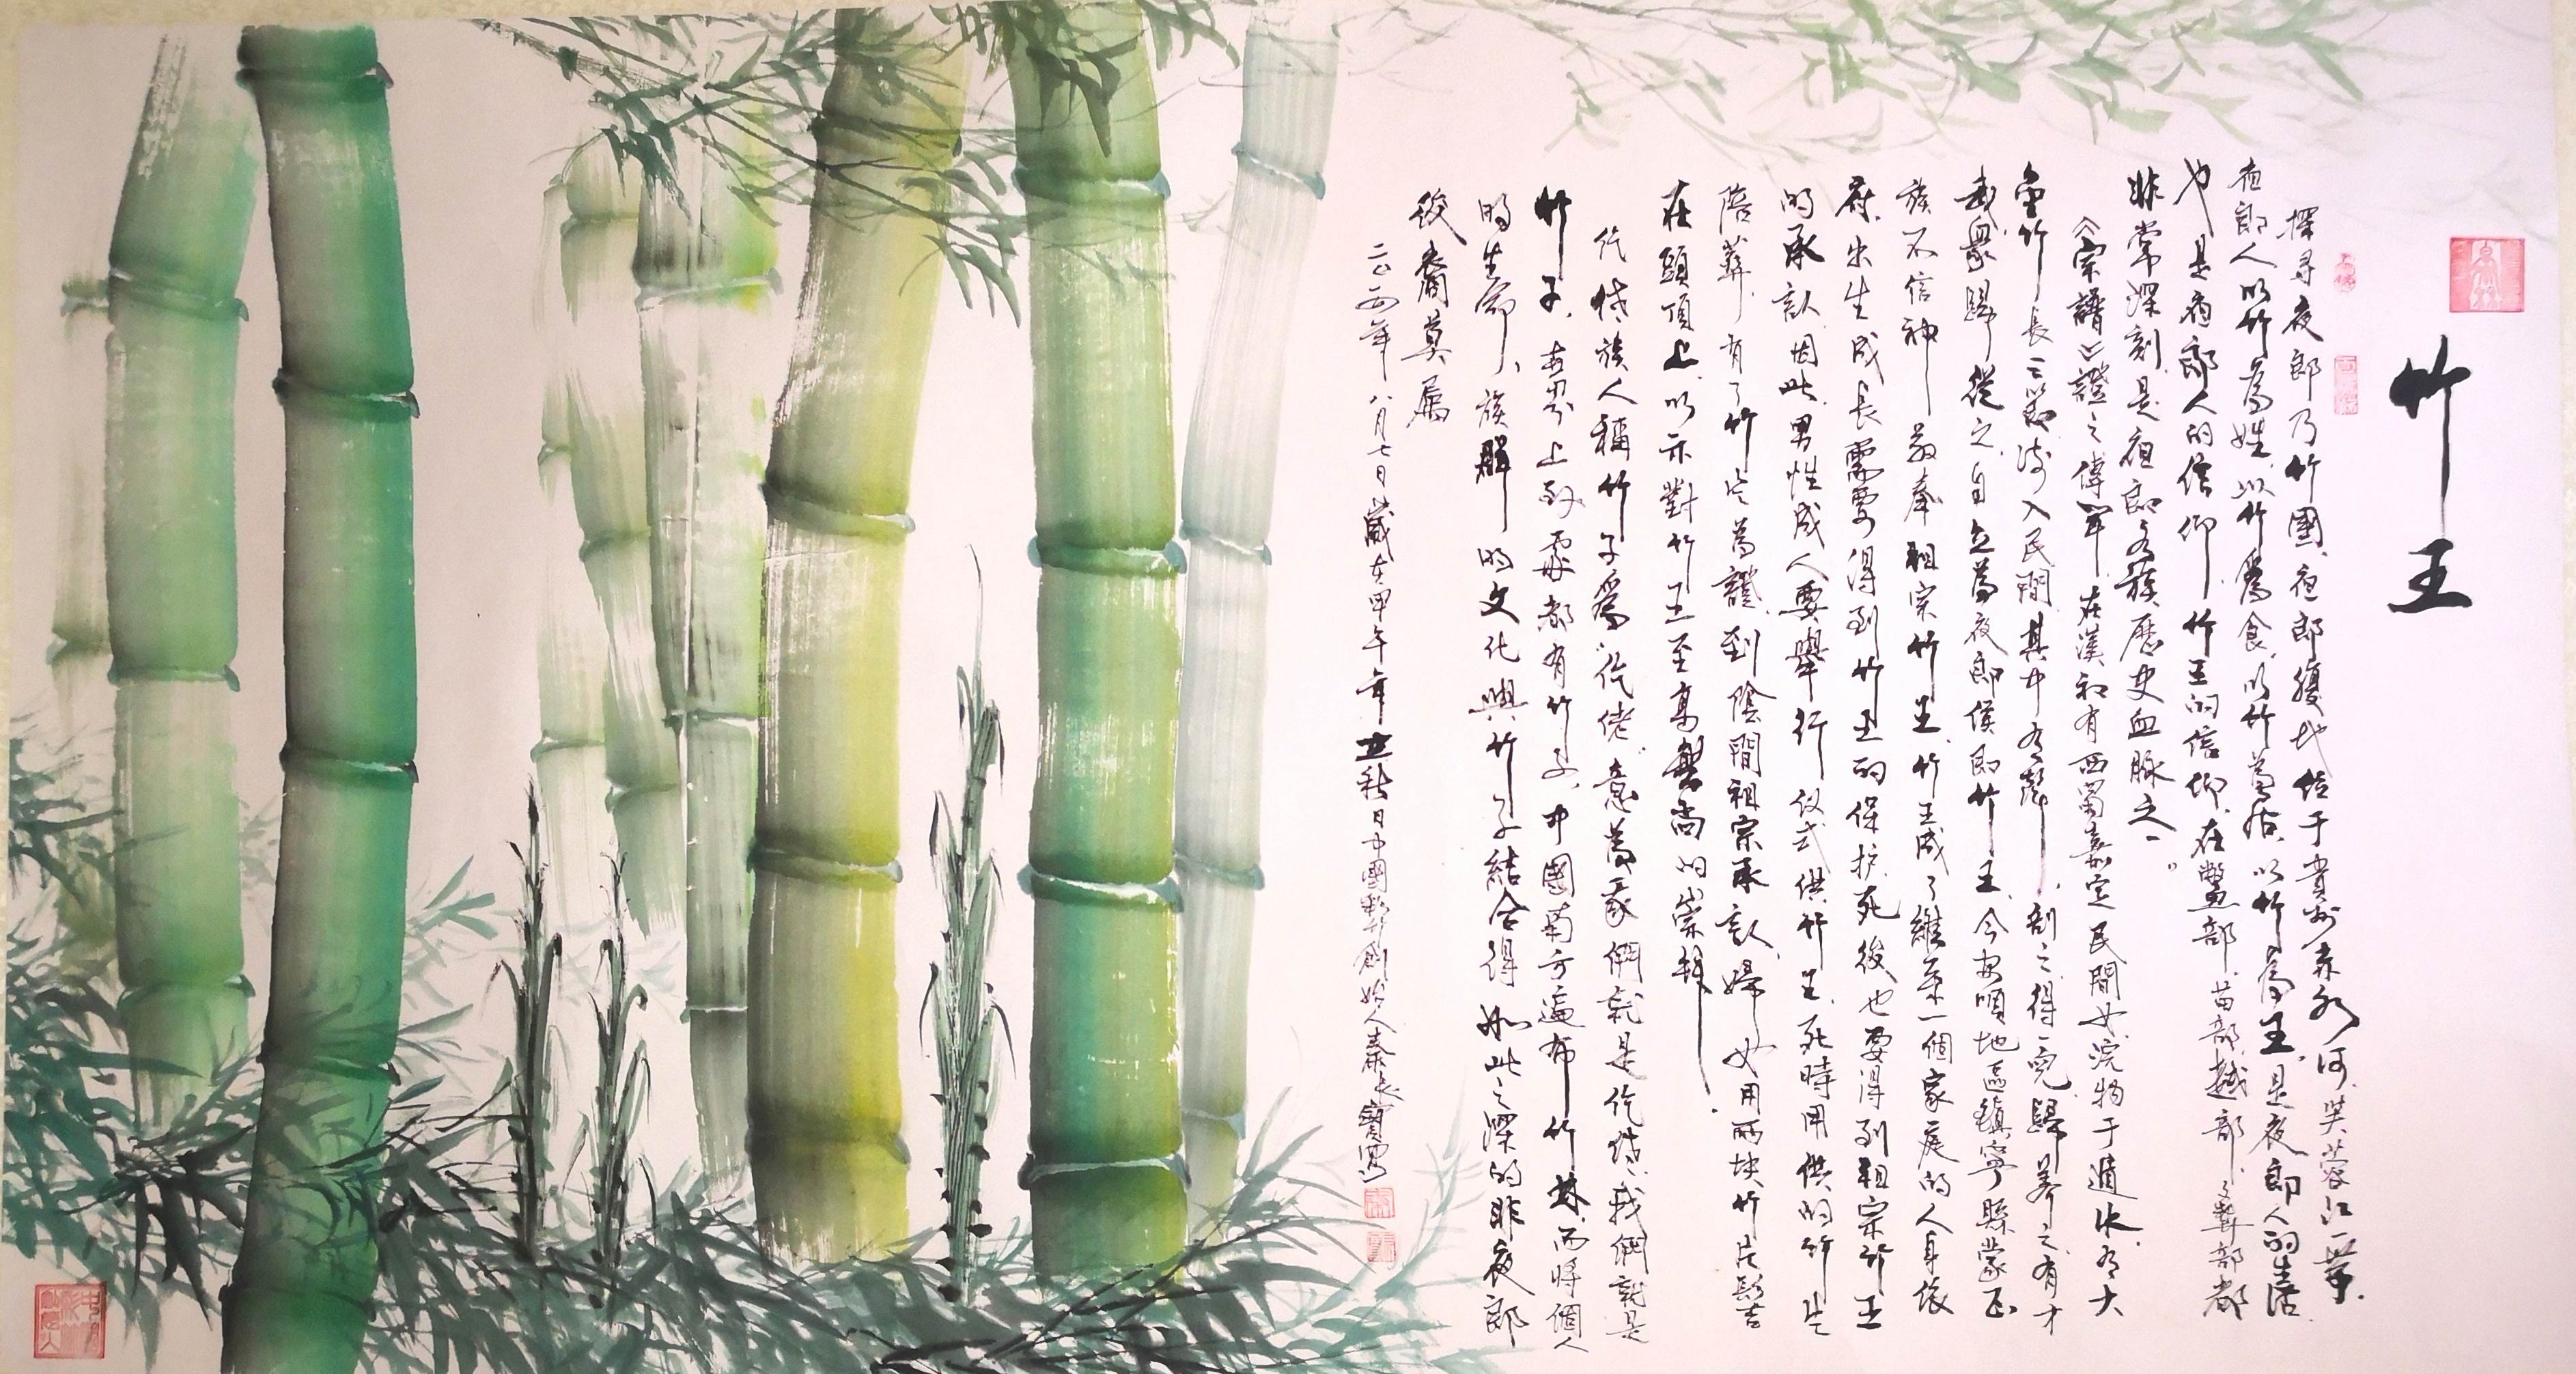 竹王
探寻夜郎乃竹國、夜郎腹地位于貴州赤水河、芙蓉江一帶、
夜郎人以竹為姓、以竹為食、以竹為居、以竹為王、是夜郎人的生活
也是夜郎人的信仰、竹王的信仰、在鱉部、苗部、越部、彝部都
非常深刻、是夜郎各族歷史血脉之一。
《宗譜》證之傳單、在漢初有西蜀嘉定民間女浣物于遁水、有大
金竹長三節流入民間、其中有聲、剖之、得一兒、歸養之、有才
武、眾歸從之、自立為夜郎侯即竹王、今安順地區鎮寧縣蒙正
族不信神、敬奉祖宗竹王、竹王成了維系一個家庭的人身依
府、出生成長需要得到竹王的保护、死後也要得到祖宗竹王
的承認、因此、男性成人要舉行仪式供竹王、死時用供的竹片
陪葬、有了竹片為證、到陰間祖宗承認、婦女用兩块竹片髮吉
在頭頂上、以示對竹王至高無尚的崇拜、
仡佬族人稱竹子為、仡佬、意為我們就是仡佬、我們就是
竹子、世界上到處都有竹子、中國南方遍布竹林、而將個人
的生命、族群的文化與竹子結合得如此之深的非夜郎
後裔莫屬
二〇一四年八月七日歲在甲午年立秋日中國 創始人秦長 寫